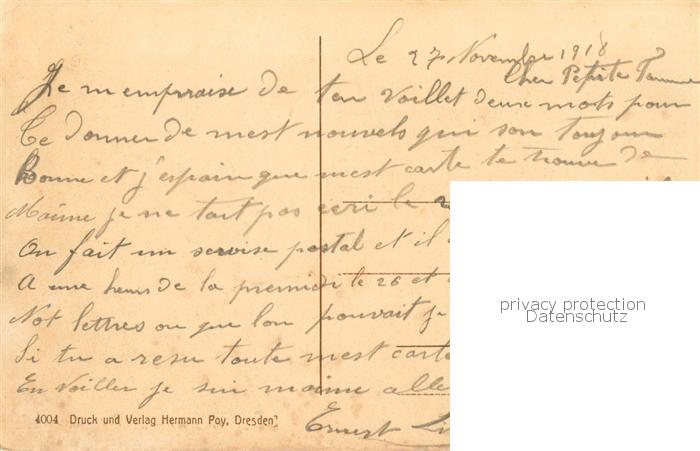 Le 27 Novembre 1918
Cher Petite
Je m emprraise de ten voillet deux mots pour
te donner de mest nouvels qui son toujour
Bonne et j'espain que mest carte te trouve de
Maime je ne tait pas ecri le 2
On fait un servise postal et il
A une heur de la premidi le 26 et
Not lettres ou que lon pouvait je
Si tu a resu toute mest carte
En Voiller je sui maime alle
Ernest Li
4004 Druck und Verlag Hermann Poy, Dresden
privacy protection
Datenschutz